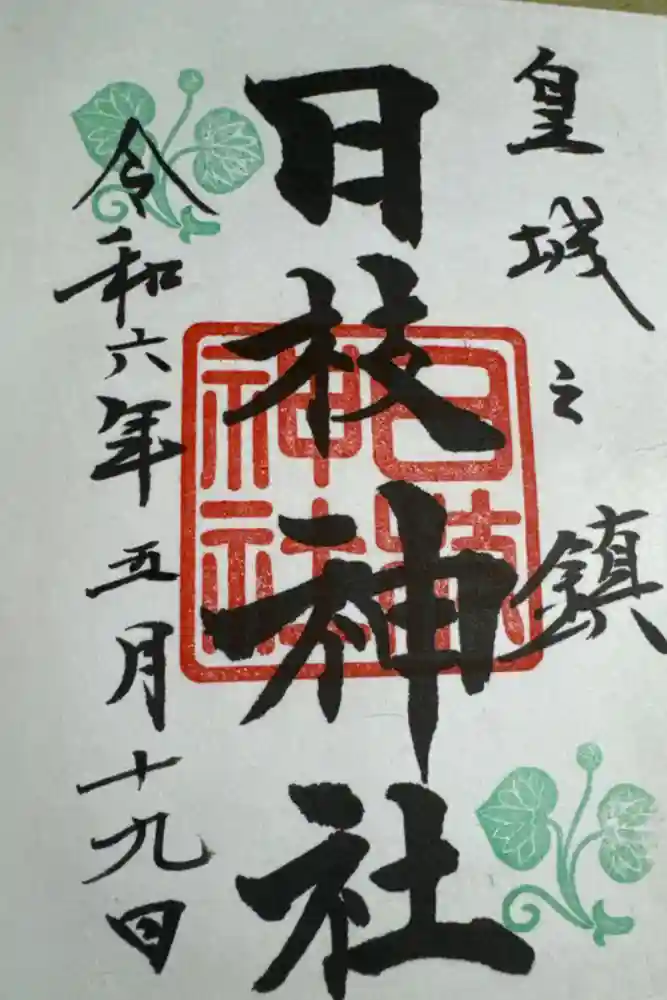 皇城之鎮
日枝神社
日枝神社
令和六年五月十九日